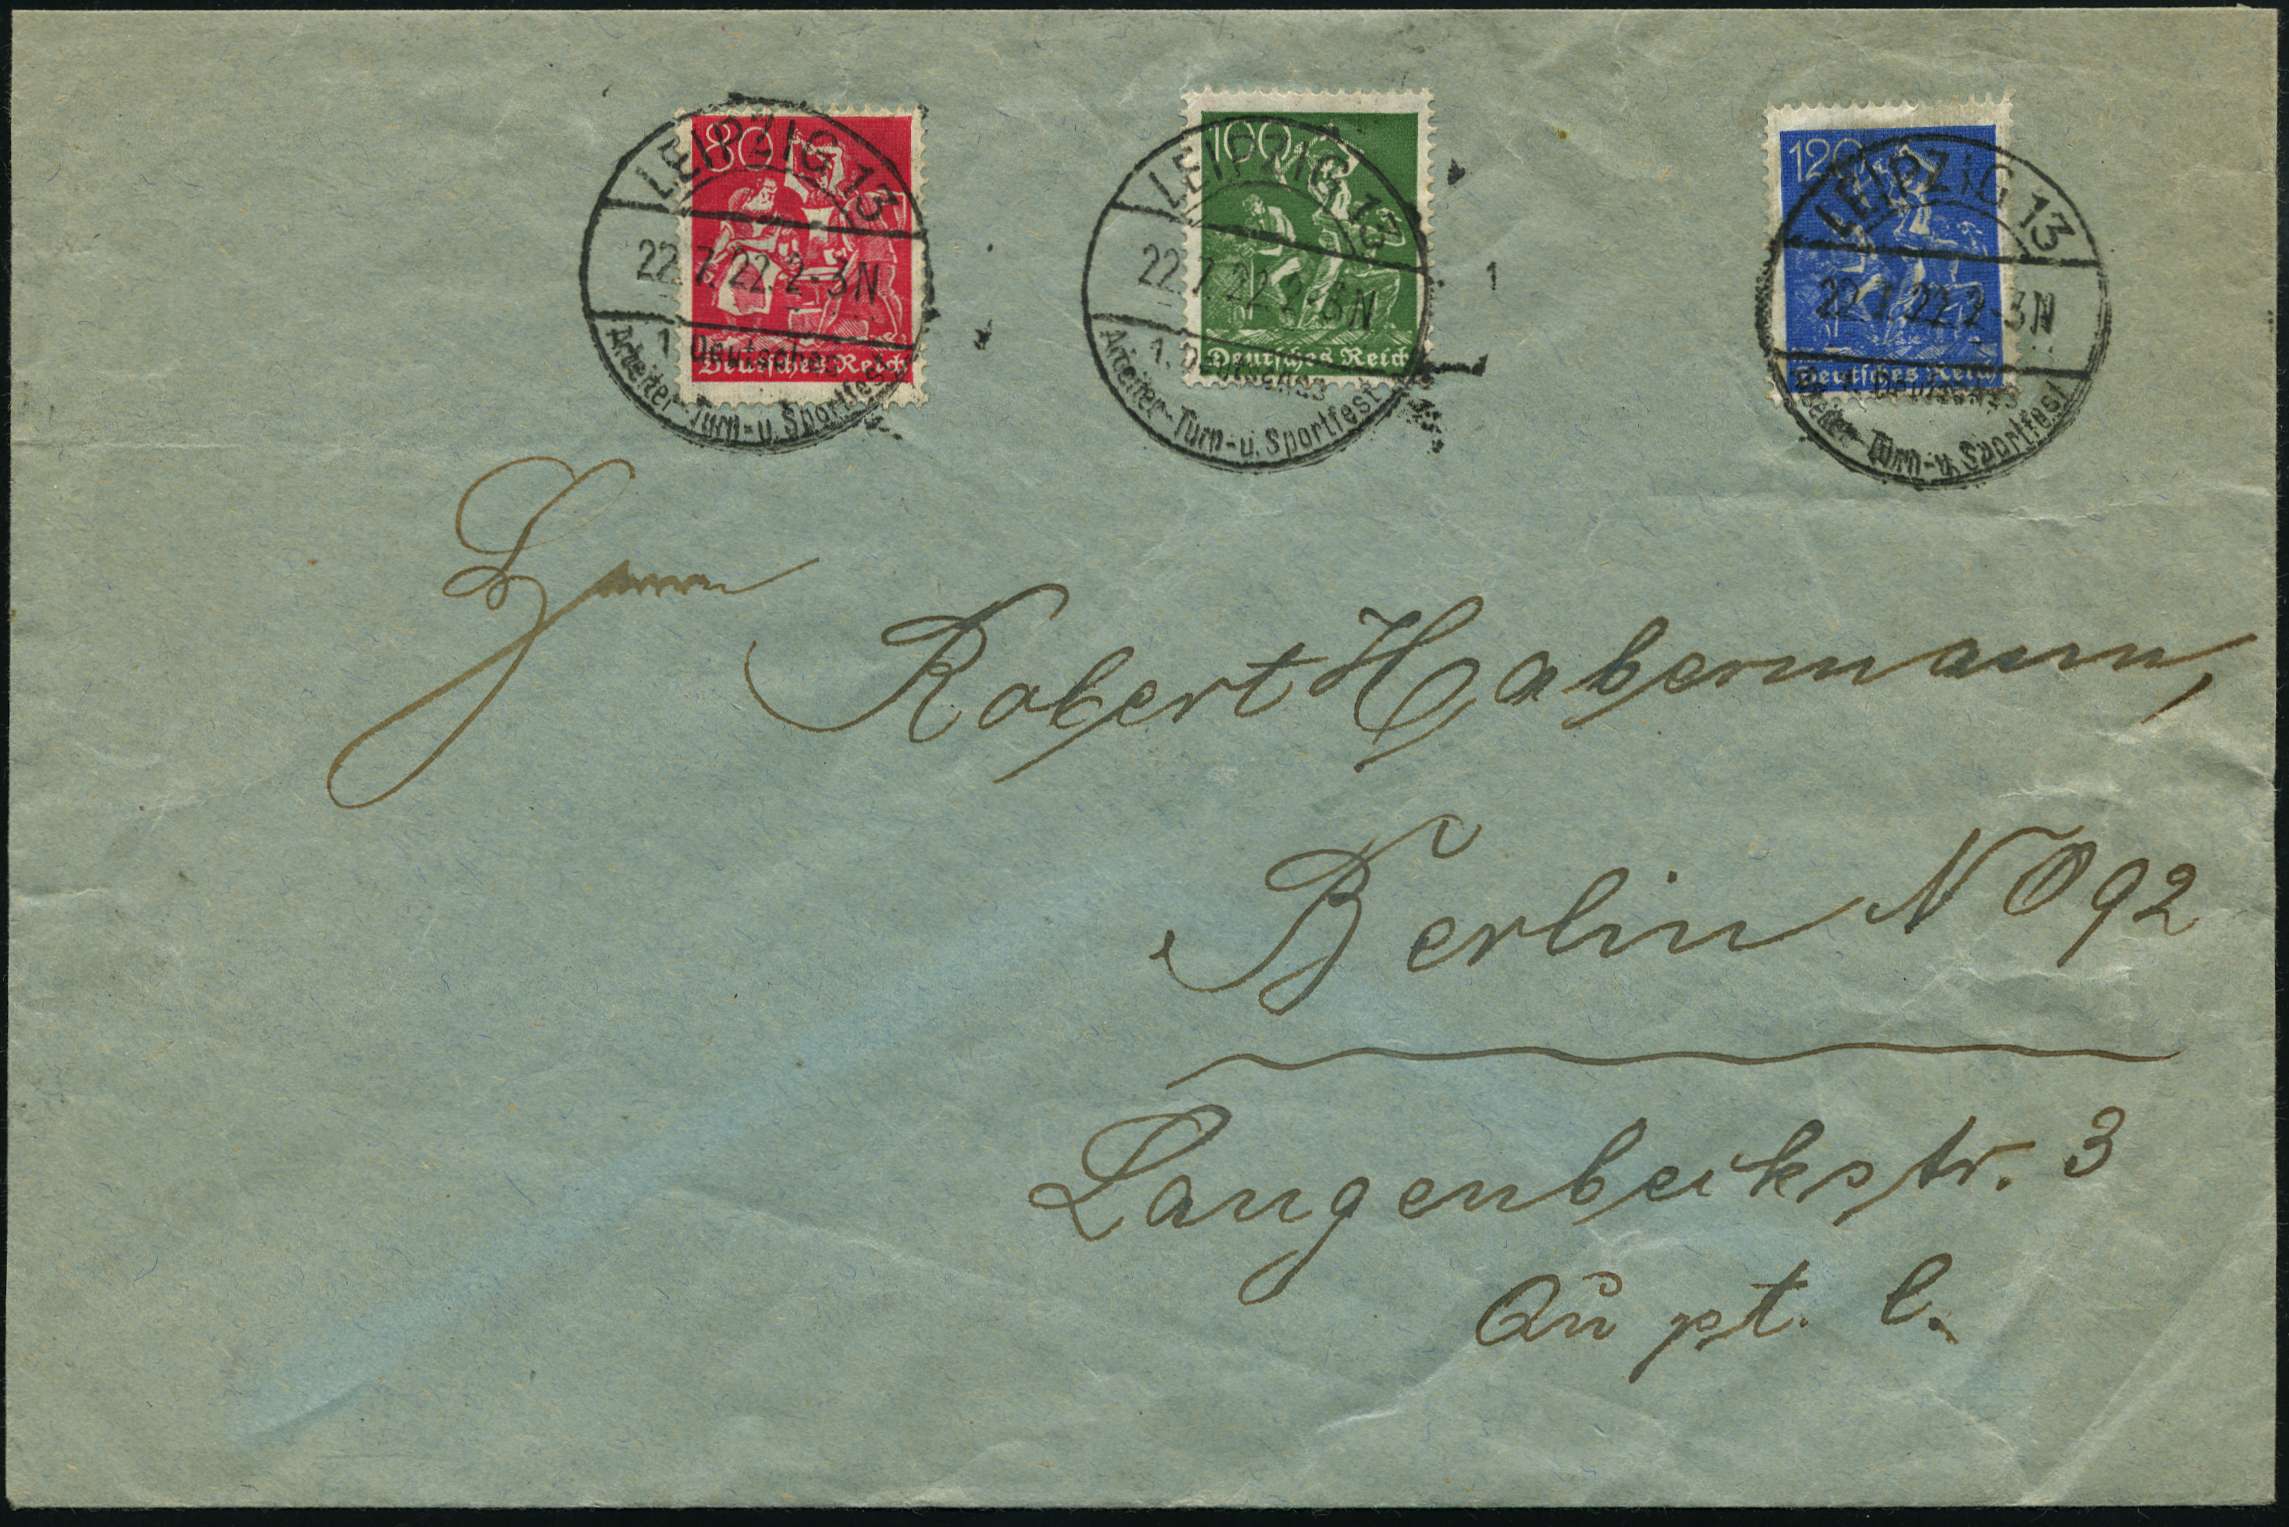 80
Deutsches Reich
LEIPZIG 13
22.7.22.2-3N
1. Deutsches
Arbeiter-Turn-u. Sportfest
100
Deutsches Reich
LEIPZIG 13
22.7.22.2-3N
1. Deutsches
Arbeiter-Turn-u. Sportfest
120
Deutsches Reich
LEIPZIG 13
22.7.22.2-3N
1. Deutsches
Arbeiter-Turn-u. Sportfest
Herrn
Robert Habermann,
Berlin NO 92
Langenbeckstr. 3
Qu pt. l.